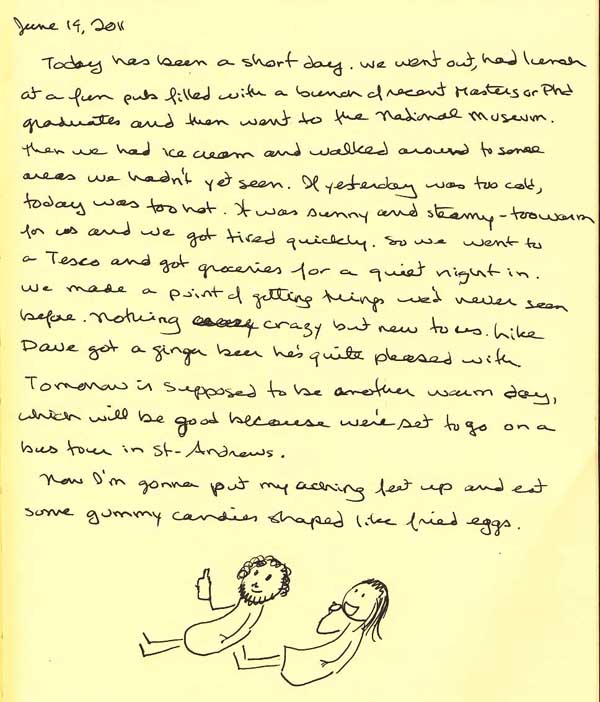 June 19, 2011
Today has been a short day. We went out, had lunch
at a fun pub filled with a bunch of recent Masters or Phd
graduates and then went to the National Museum.
Then we had ice cream and walked around to some
areas we hadn't yet seen. If yesterday was too cold,
today was too hot. It was sunny and steamy - too warm
for us and we got tired quickly. So we went to
a Tesco and got groceries for a quiet night in.
We made a point of getting things we'd never seen
before. Nothing crazy but new to us. Like
Dave got a ginger beer he's quite pleased with.
Tomorrow is supposed to be another warm day,
which will be good because we're set to go on a
bus tour in St-Andrews.
Now I'm gonna put my aching feet up and eat
some gummy candies shaped like fried eggs.